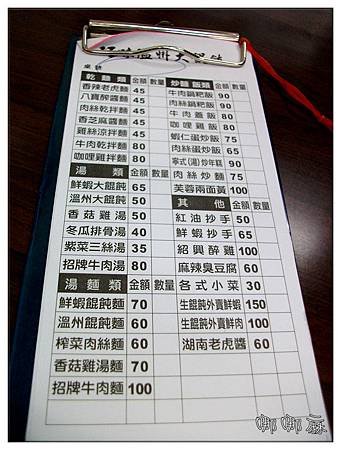 溫州大餛飩
桌號
乾麵類 金額 數量
香辣老虎麵 45
八寶醡醬麵 45
肉絲乾拌麵 45
香芝麻醬麵 45
雞絲涼拌麵 45
牛肉乾拌麵 80
咖哩雞拌麵 80
湯類 金額 數量
鮮蝦大餛飩 65
溫州大餛飩 50
香菇雞湯 50
冬瓜排骨湯 40
紫菜三絲湯 35
招牌牛肉湯 80
湯麵類 金額 數量
鮮蝦餛飩麵 70
溫州餛飩麵 60
榨菜肉絲麵 60
香菇雞湯麵 70
招牌牛肉麵 100
炒麵飯類 金額 數量
牛肉鍋粑飯 90
肉絲鍋粑飯 90
牛肉燴飯 90
咖哩雞飯 90
蝦仁蛋炒飯 75
肉絲蛋炒飯 65
寧式(湯)炒年糕 90
肉絲炒麵 75
芙蓉兩面黃 100
其他 金額 數量
紅油抄手 50
鮮蝦抄手 65
紹興醉雞 100
麻辣臭豆腐 60
各式小菜 30
生餛飩外賣鮮蝦 150
生餛飩外賣鮮肉 100
湖南老虎醬 60